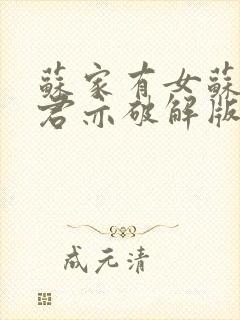 蘇家有女蘇
君亦破解版
成元清